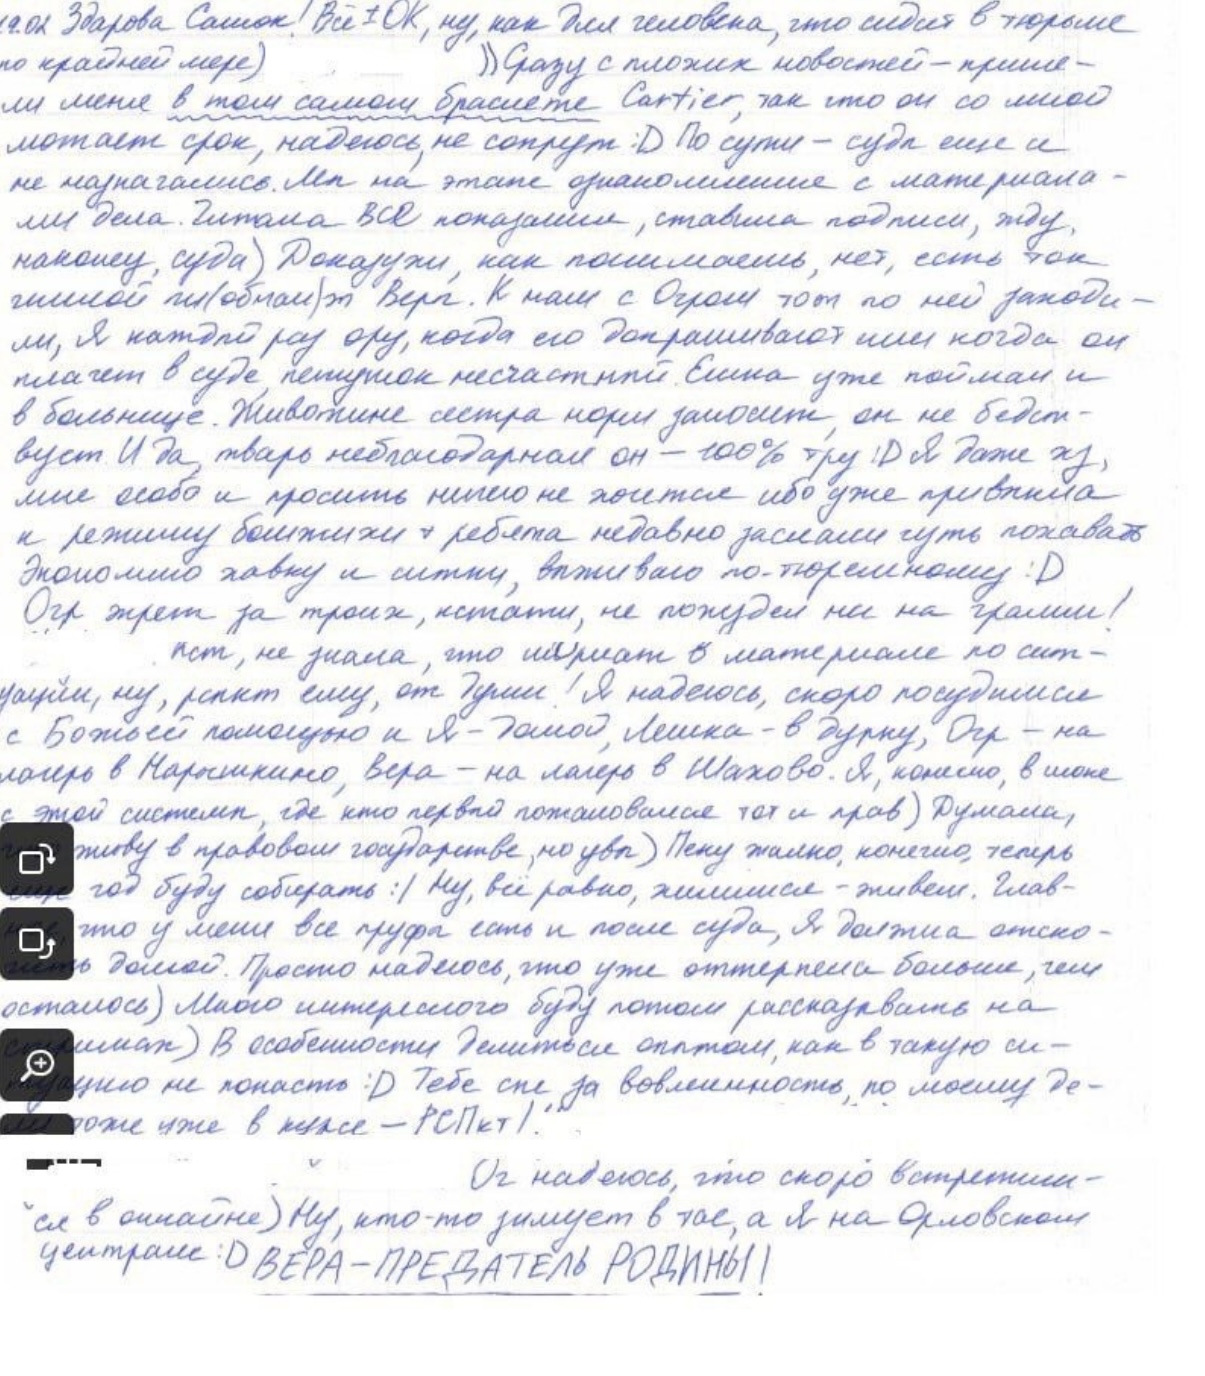 Здарова Сашок! Всё ± ОК, ну, как для человека, что сидит в тюрьме
по крайней мере) )) Сразу с плохих новостей – приня-
ли меня в том самом браслете Cartier, так что он со мной
мотает срок, надеюсь, не сопрут :D По сути – суды еще и
не назначались. Мы на этапе ознакомления с материала-
ми дела. Читала ВСЕ показания, ставила подписи, жду,
наконец, суда) Доказухи, как понимаешь, нет, есть так
(обман) Веры. К нам с Огром тот по ней заходи-
ли, Я каждый раз ору, когда его допрашивают или когда он
плачет в суде, петушок несчастный. Ешка уже пойман и
в больнице. Животине сестра норм заносит, он не бедст-
вует. И да, тварь неблагодарная он – 100% тру :D Я даже хз,
мне особо и просить ничего не хочется ибо уже привыкла
к режиму бомжихи + ребята недавно заслали чуть похавать
Экономлю хавку и сиги, выживаю по-тюремному :D
Огр жрет за троих, кстати, не похудел ни на грамм!
не знала, что в материале по сит-
уации, ну, рспкт ему, от души! Я надеюсь, скоро посудимся
с Божьей помощью и Я – домой, Лешка – в дурку, Огр – на
лагерь в Нарышкино, Вера – на лагерь в Шахово. Я, конечно, в шоке
с этой системы, где кто первый пожаловался тот и прав) Думала,
живу в правовом государстве, но увы) Пеку жалко, конечно, теперь
еще год буду собирать :/ Ну, всё равно, химимся – живем. Глав-
ное, что у меня все пруфы есть и после суда, Я должна отско-
чить домой. Просто надеюсь, что уже оттерпела больше, чем
осталось) Много интересного буду потом рассказывать на
стримах) В особенности делиться опытом, как в такую си-
туацию не попасть :D Тебе спс за вовлеченность, по моему де-
лу тоже уже в курсе – РСПкт!
надеюсь, что скоро встретим-
ся в онлайне) Ну, кто-то зимует в тае, а Я на Орловском
централе :D ВЕРА – ПРЕДАТЕЛЬ РОДИНЫ!